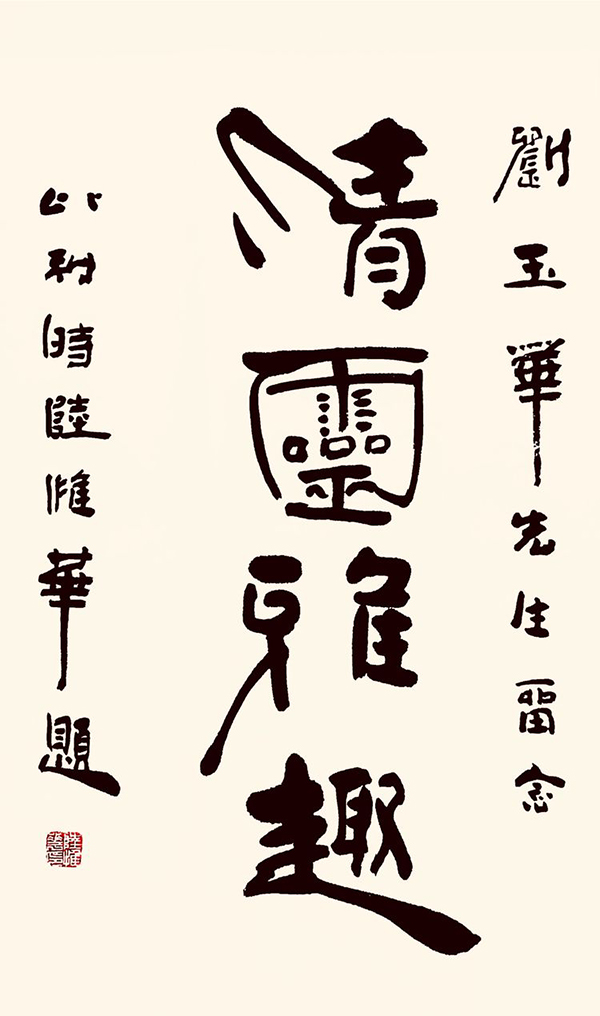 劉玉華先生留念
清靈雅趣
比利時陸惟華題